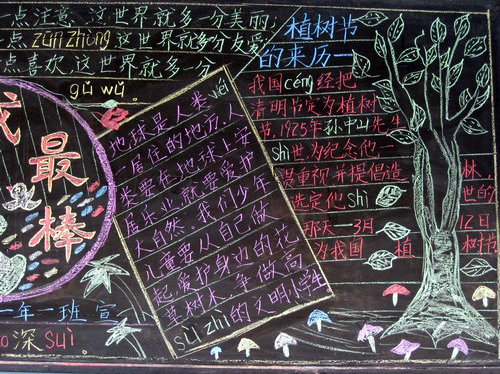 一点注意,这世界就多一分美丽;
一点zūn zhòng这世界就多一分友爱
点喜欢,这世界就多一分
gǔ wǔ。
最
棒
一年一班 宣
深suì
地球是人类wéi
一居住的地方,人
类要在地球上安
居乐业,就要爱护
大自然。我们少年
儿童要从自己做
起,爱护身边的花
草树木,争做高
sù zhì的文明小学生
植树节
的来历—
我国céng经把
清明节定为植树
节,1925年孙中山先生
shì世,为纪念他一
贯重视并提倡造林,
选定他shì世的
那天—3月12日
为我国植树节